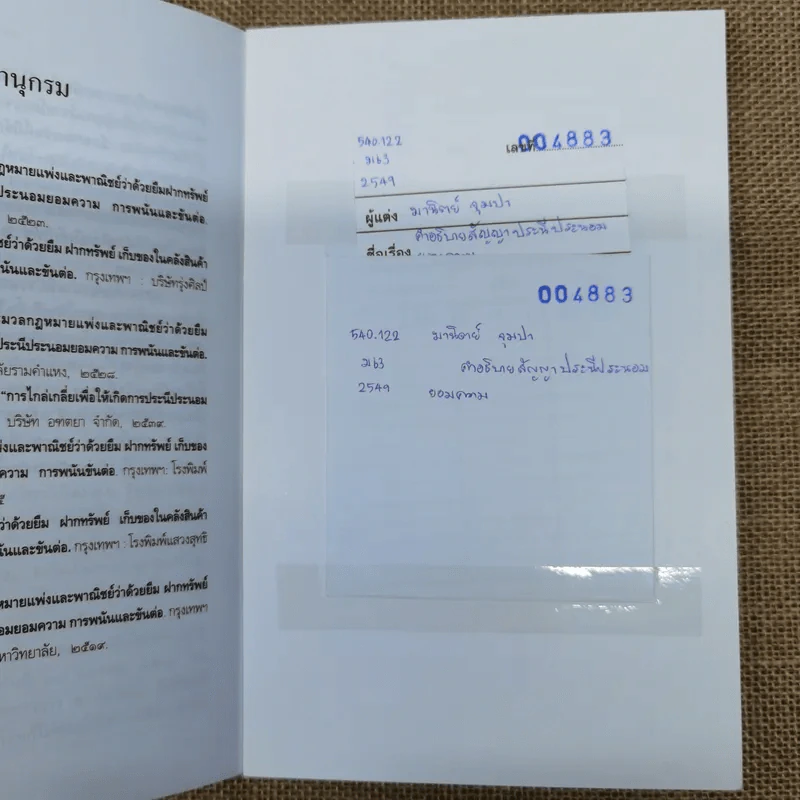 านุกรม
ฎหมายแพ่งและพาณิชย์ว่าด้วยยืมฝากทรัพย์
ประนอมยอมความ การพนันและขันต่อ.
๒๕๒๓.
ชย์ว่าด้วยยืม ฝากทรัพย์ เก็บของในคลังสินค้า
นันและขันต่อ. กรุงเทพฯ : บริษัทรุ่งศิลป์
ะมวลกฎหมายแพ่งและพาณิชย์ว่าด้วยยืม
ประนีประนอมยอมความ การพนันและขันต่อ.
ลัยรามคำแหง, ๒๕๒๘.
"การไกล่เกลี่ยเพื่อให้เกิดการประนีประนอม
บริษัท อฑตยา จำกัด, ๒๕๓๙.
พ่งและพาณิชย์ว่าด้วยยืม ฝากทรัพย์ เก็บของ
ความ การพนันขันต่อ. กรุงเทพฯ: โรงพิมพ์
๕
ว่าด้วยยืม ฝากทรัพย์ เก็บของในคลังสินค้า
นันและขันต่อ. กรุงเทพฯ : โรงพิมพ์แสวงสุทธิ
หมายแพ่งและพาณิชย์ว่าด้วยยืม ฝากทรัพย์
อมยอมความ การพนันและขันต่อ. กรุงเทพฯ
หาวิทยาลัย, ๒๕๑๙.
540.122 เลขที่ 004883
ม63
2549
ผู้แต่ง มานิตย์ จุมปา
ชื่อเรื่อง คำอธิบายสัญญาประนีประนอม
004883
540.122 มานิตย์ จุมปา
ม63 คำอธิบายสัญญาประนีประนอม
2549 ยอมความ